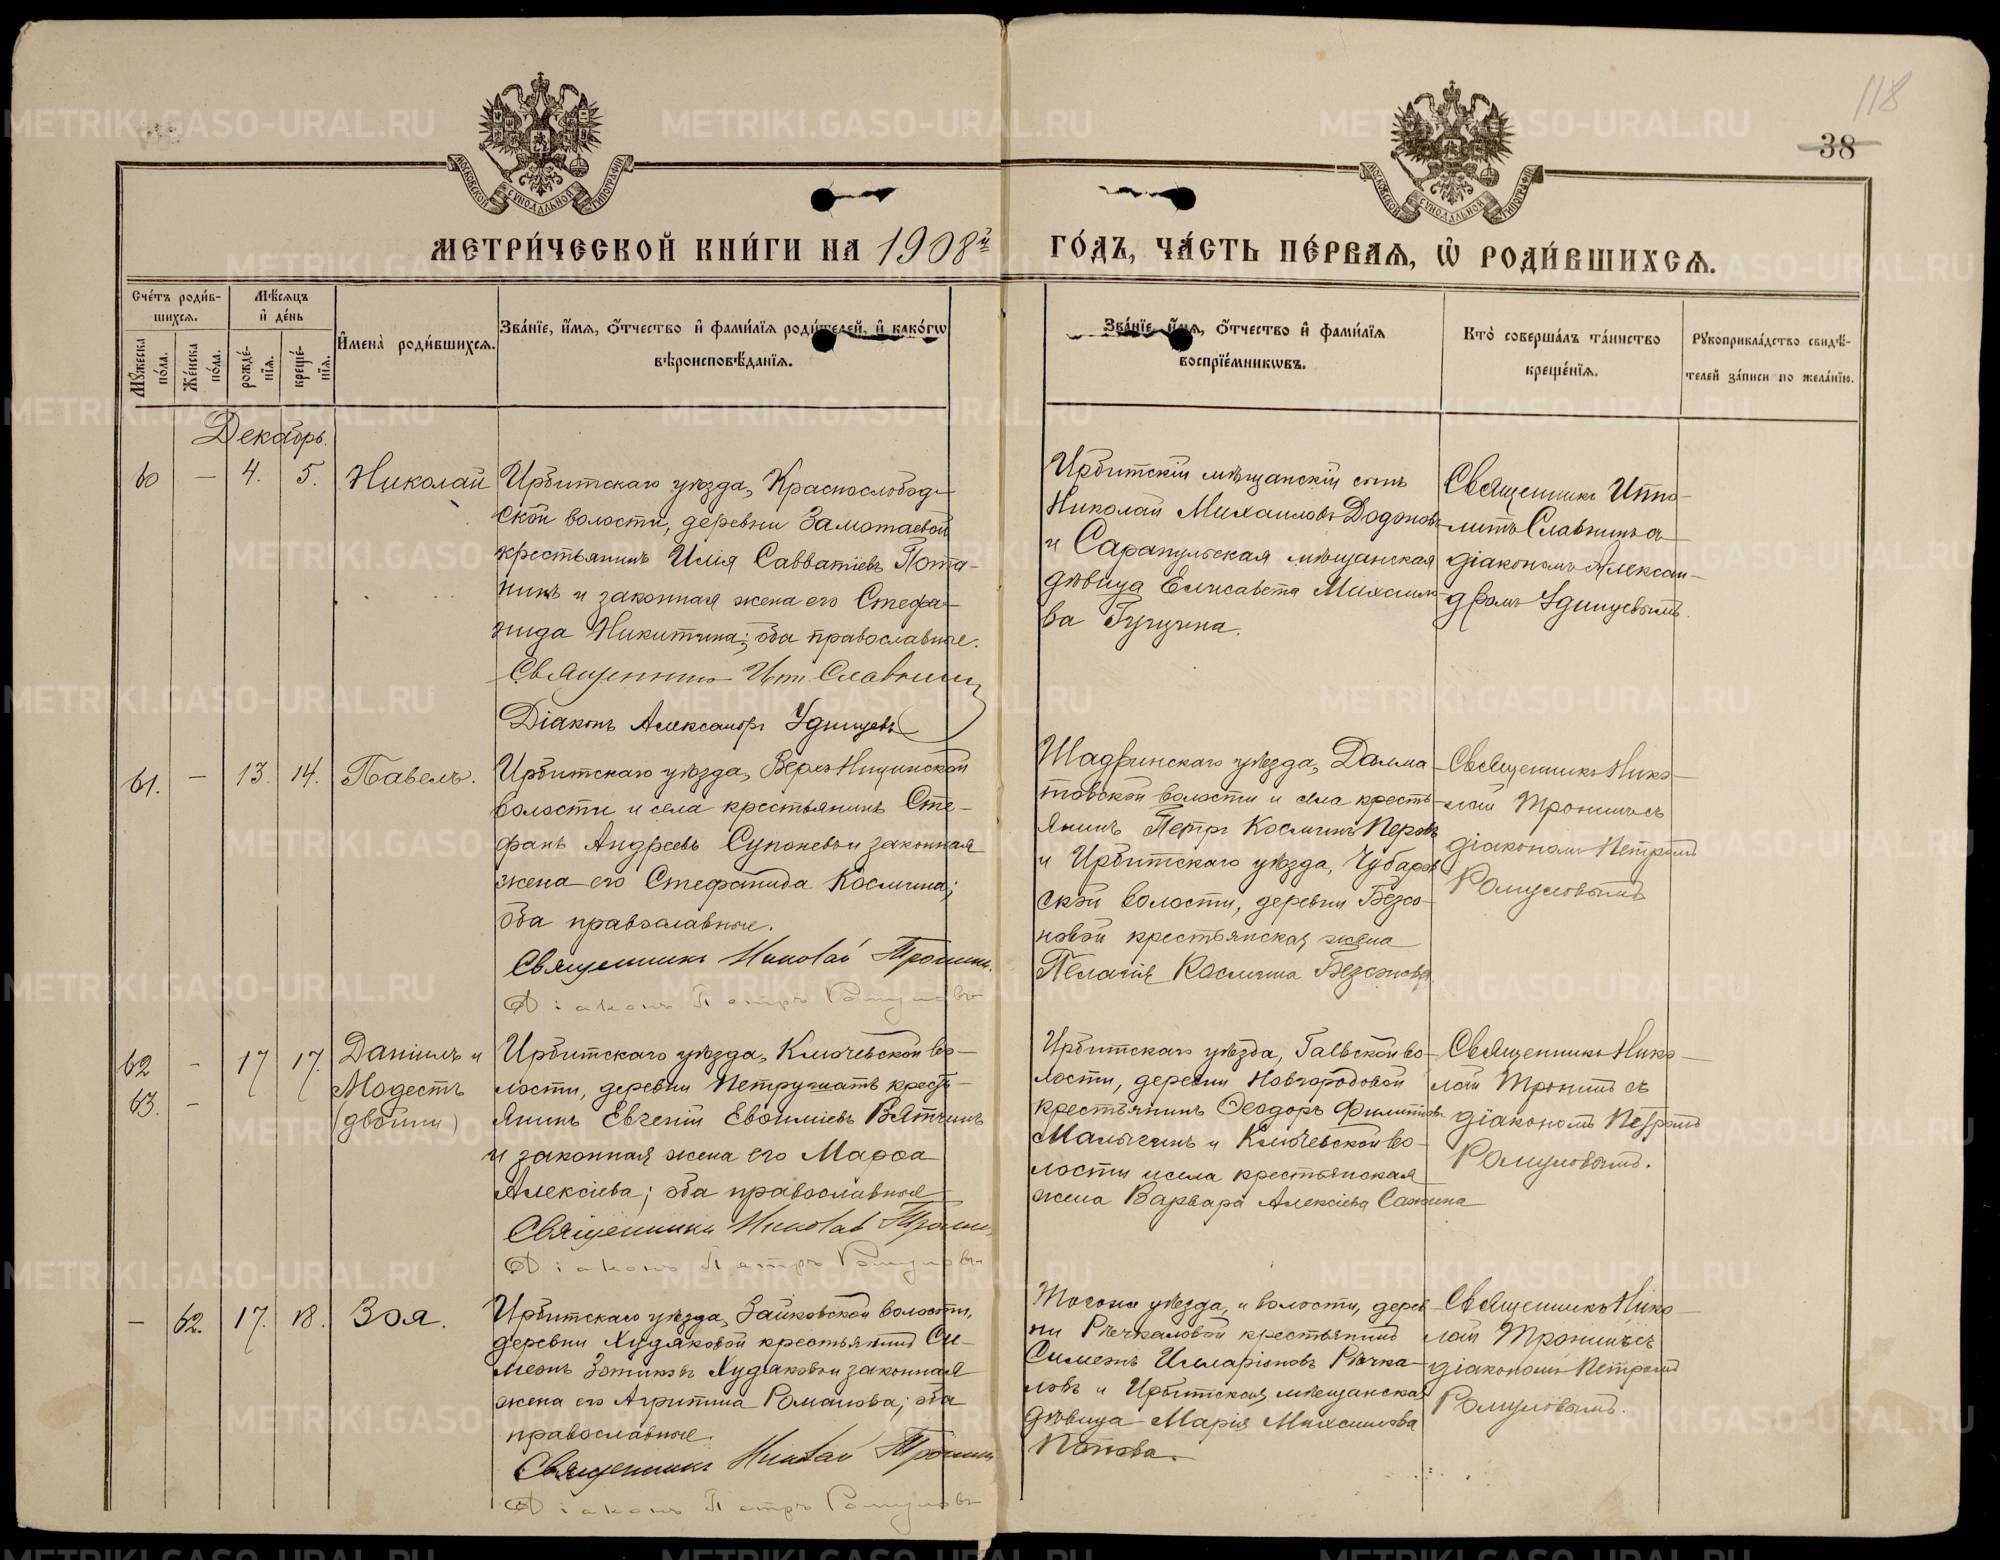 118
38
МОСКОВСКОЙ СѴНОДАЛЬНОЙ ТИПОГРАФІИ
МОСКОВСКОЙ СѴНОДАЛЬНОЙ ТИПОГРАФІИ
МЕТРИ́ЧЕСКОЙ КНИ́ГИ НА 1908й
ГО́ДЪ, ЧА́СТЬ ПЕ́РВАѦ, Ѽ РОДИ́ВШИХСѦ.
Сче́тъ роди́в-
шихсѧ.
Мѣ́сѧцъ
и҆ де́нь
Мꙋ́жеска по́ла.
Же́нска по́ла.
рожде́-
нїѧ.
креще́-
нїѧ.
И҆мена̀ роди́вшихсѧ.
Зва́нїе, и҆́мѧ, ѻ҆́тчество и҆ фами́лїѧ роди́телей, и҆ како́гѡ
вѣроисповѣ́данїѧ.
Зва́нїе, и҆́мѧ, ѻ҆́тчество и҆ фами́лїѧ
воспрїе́мникѡвъ.
Кто̀ соверша́лъ та́инство
креще́нїѧ.
Рꙋкоприкла́дство свидѣ́-
телей за́писи по жела́нїю.
Декабрь.
60 — 4. 5. Николай
Ирбитскаго уѣзда, Краснослобод-
ской волости, деревни Замотаевой
крестьянинъ Илія Савватіевъ Пота-
нинъ и законная жена его Стефа-
нида Никитина; оба православные.
Священникъ Ипп. Славнинъ
Діаконъ Александръ Удинцевъ
Ирбитскій мѣщанскій сынъ
Николай Михаиловъ Додоновъ
и Сарапульская мѣщанская
дѣвица Елисавета Михаило-
ва Гущина.
Священникъ Иппо-
литъ Славнинъ съ
діакономъ Алексан-
дромъ Удинцевымъ.
61. — 13. 14. Павелъ.
Ирбитскаго уѣзда, Верхъ-Ницинской
волости и села крестьянинъ Сте-
фанъ Андреевъ Супоневъ и законная
жена его Стефанида Космина;
оба православные.
Священникъ Николай Тронинъ.
Діаконъ Петръ Ромуловъ
Шадринскаго уѣзда, Далма-
товской волости и села кресть-
янинъ Петръ Косминъ Перовъ
и Ирбитскаго уѣзда, Чубаров-
ской волости, деревни Безсо-
новой крестьянская жена
Пелагія Космина Безсонова.
Священникъ Нико-
лай Тронинъ съ
діакономъ Петромъ
Ромуловымъ
62 — 17 17. Даніилъ и
63. — Модестъ
(двойни)
Ирбитскаго уѣзда, Ключевской во-
лости, деревни Петрушатъ кресть-
янинъ Евгеній Евѳиміевъ Вятчинъ
и законная жена его Марѳа
Алексіева; оба православные
Священникъ Николай Тронинъ
Діаконъ Петръ Ромуловъ
Ирбитскаго уѣзда, Гаевской во-
лости, деревни Новгородовой
крестьянинъ Ѳеодоръ Филипповъ
Малыгинъ и Ключевской во-
лости и села крестьянская
жена Варвара Алексіева Сажина
Священникъ Нико-
лай Тронинъ съ
діакономъ Петромъ
Ромуловымъ.
— 62. 17. 18. Зоя.
Ирбитскаго уѣзда, Зайковской волости,
деревни Худяковой крестьянинъ Си-
меонъ Зотиковъ Худяковъ и законная
жена его Агрипина Романова; оба
православные.
Священникъ Николай Тронинъ
Діаконъ Петръ Ромуловъ
Тогоже уѣзда, и волости, дерев-
ни Рѣчкаловой крестьянинъ
Симеонъ Илларіоновъ Рѣчка-
ловъ и Ирбитская мѣщанская
дѣвица Марія Михаилова
Попова.
Священникъ Нико-
лай Тронинъ съ
діакономъ Петромъ
Ромуловымъ.
METRIKI.GASO-URAL.RU